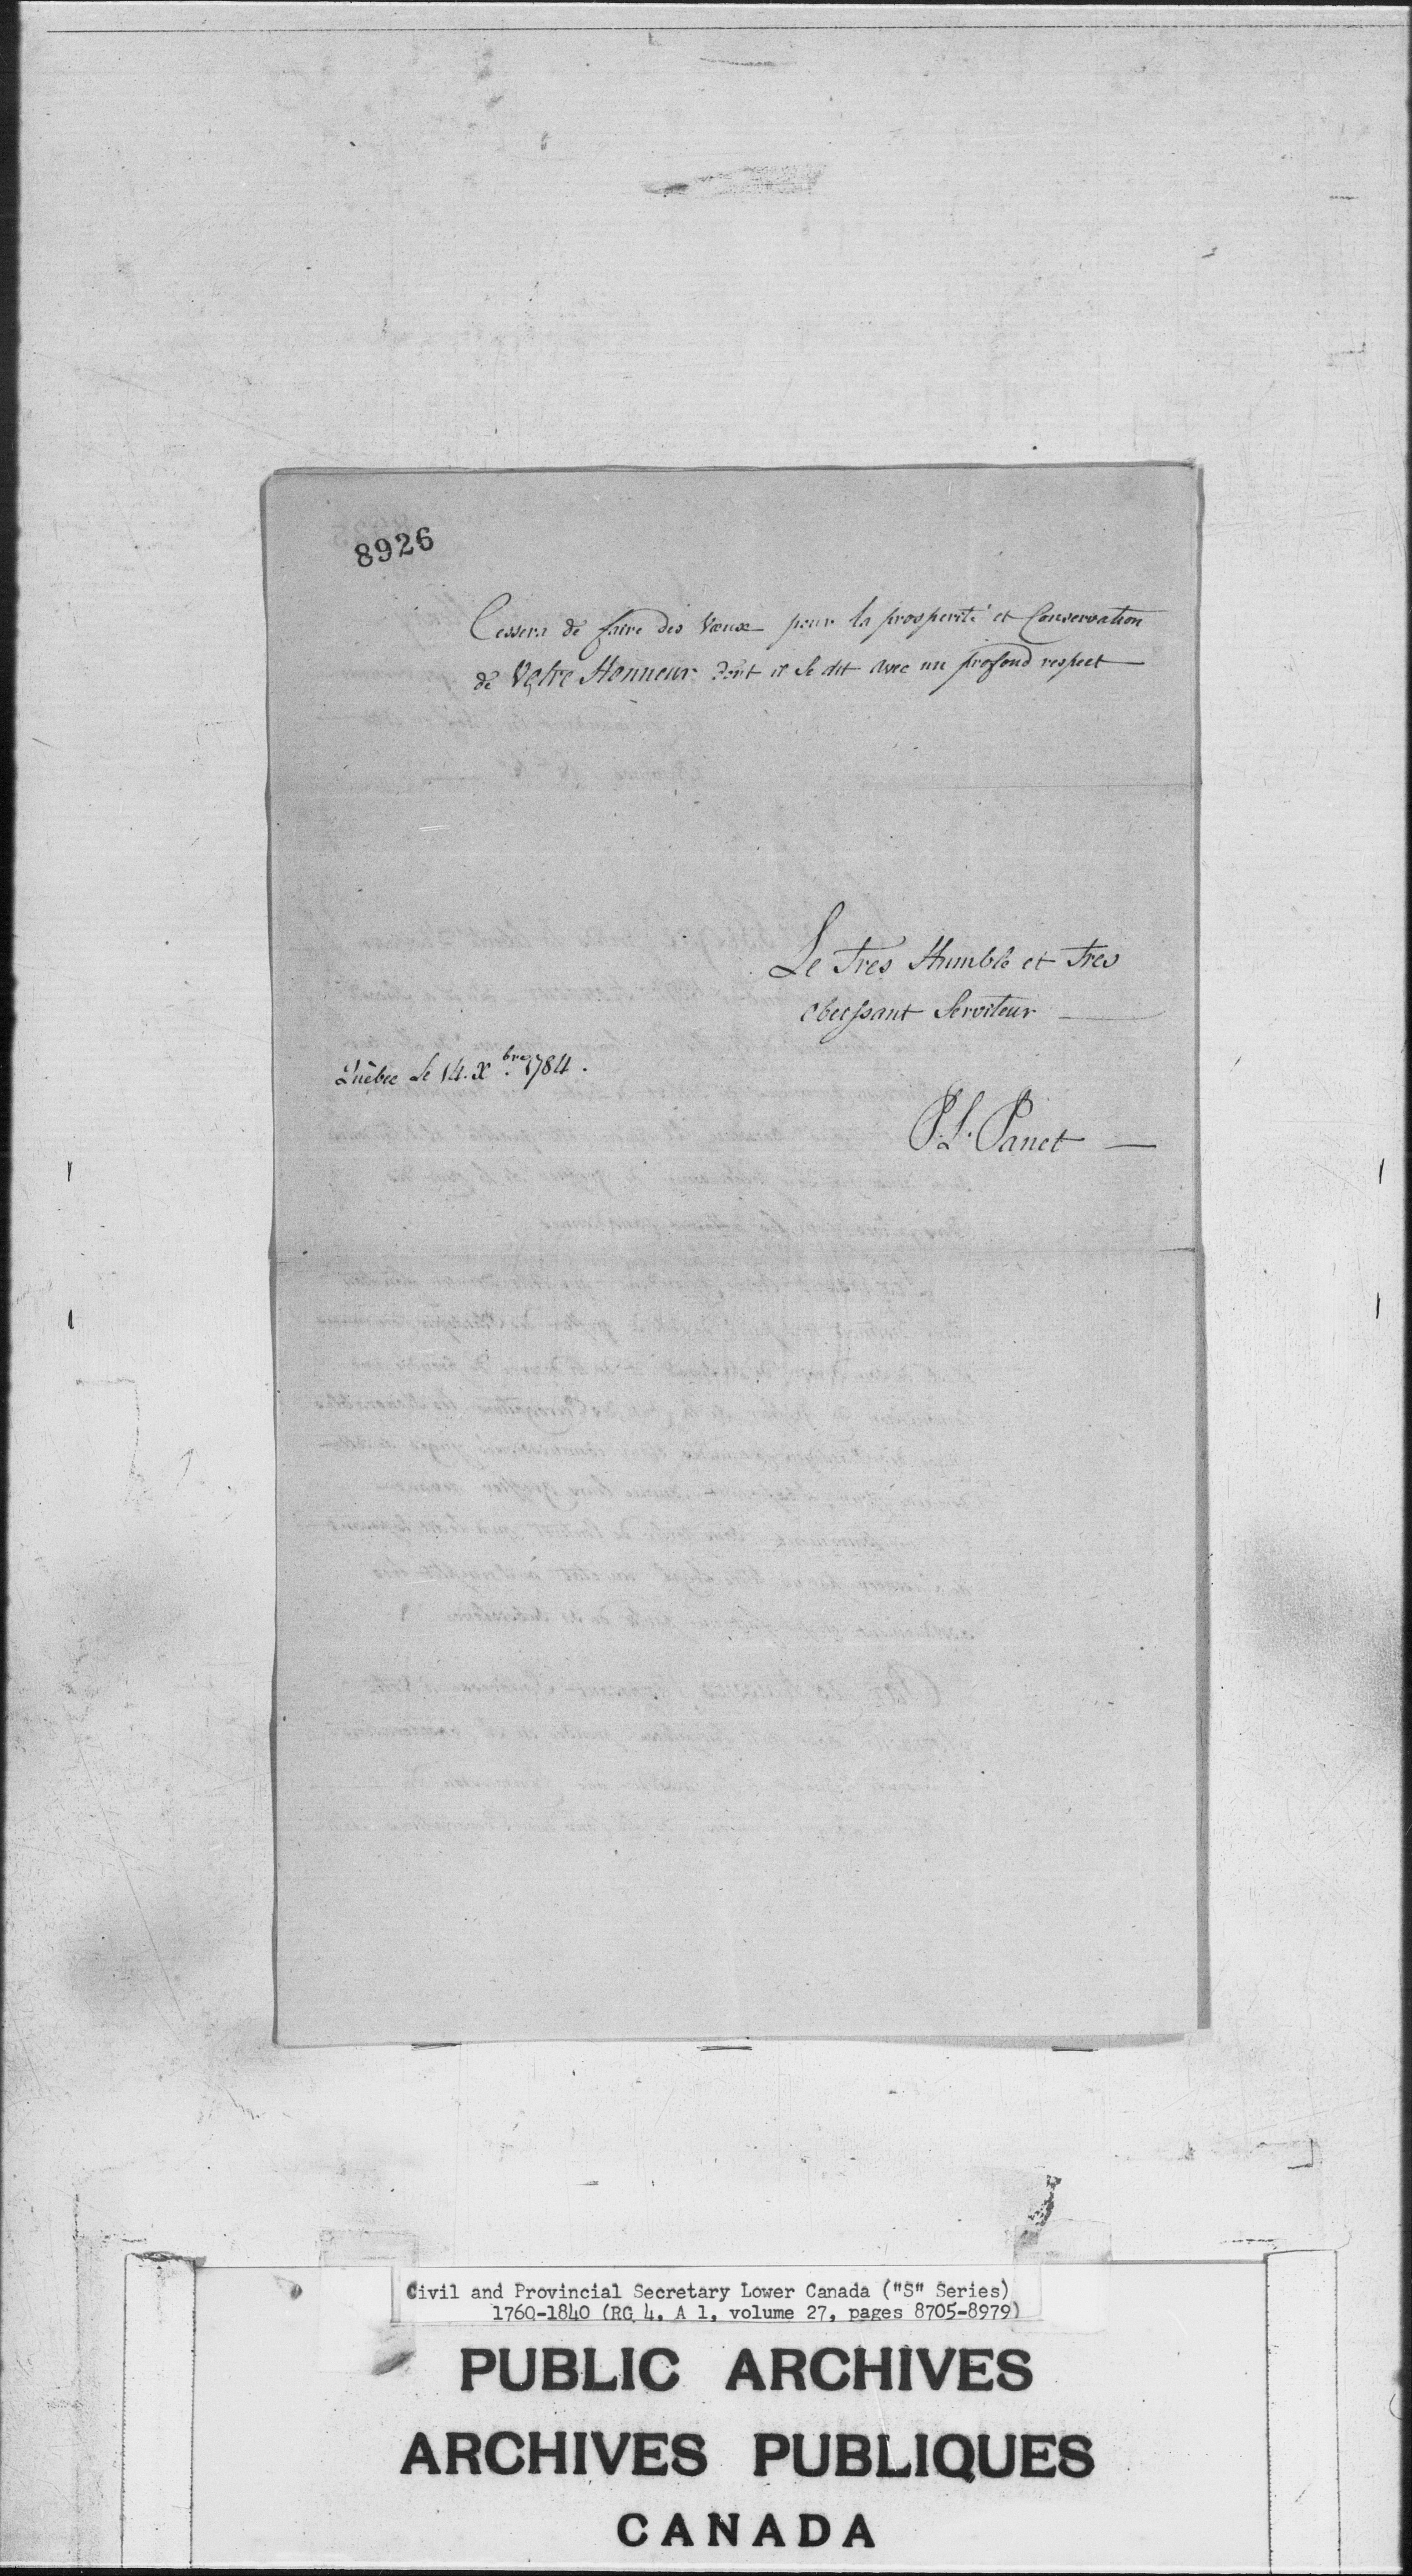 8926
Cessera de faire des Vœux pour la prosperité et Conservation
de Votre Honneur dont il se dit avec un profond respect
Le Tres Humble et Tres
obeissant Serviteur
Québec Le 14. Xbre. 1784.
P. L. Panet
Civil and Provincial Secretary Lower Canada ("S" Series)
1760-1840 (RG 4, A 1, volume 27, pages 8705-8979)
PUBLIC ARCHIVES
ARCHIVES PUBLIQUES
CANADA